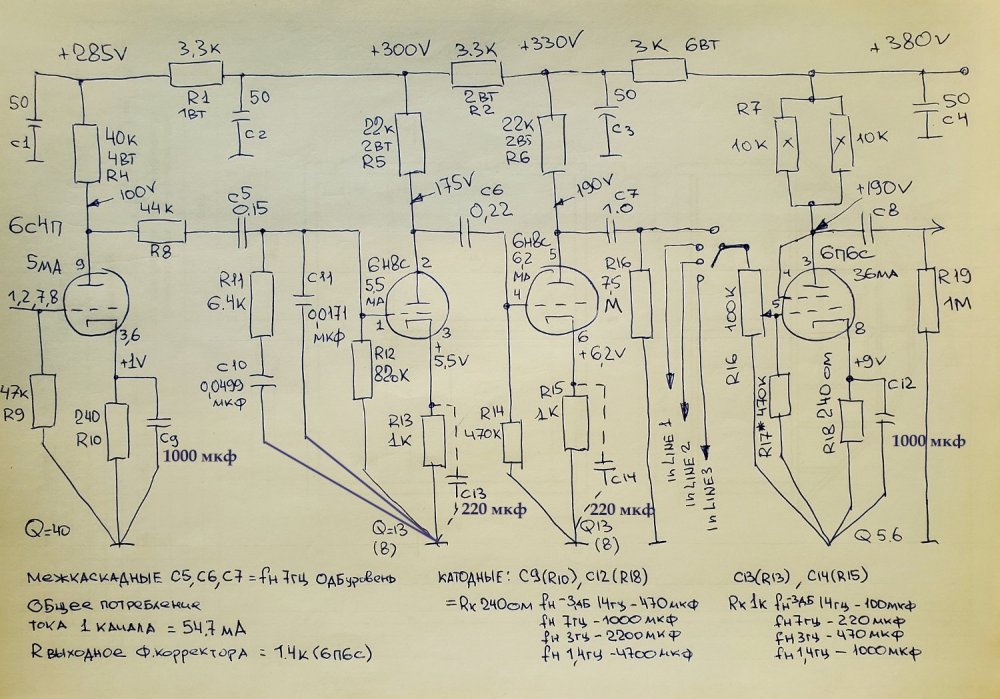 +285V
3,3К
R1
1ВТ
+300V
3.3К
2ВТ
R2
+330V
3К 6ВТ
+380V
50
C1
50
C2
50
C3
50
C4
40К
4ВТ
R4
100V
22К
2ВТ
R5
175V
22К
2ВТ
R6
190V
R7
10К
10К
+190V
6С4П
44К
R8
C5
0.15
C6
0,22
C7
1.0
C8
5МА
9
1,2,7,8
3,6
+1V
R11
6.4К
C11
0,0171
МКФ
C10
0,0499
МКФ
6Н8С
5,5
МА
2
1
3
+
5,5V
6Н8С
6,2
МА
5
4
6
+6,2V
R16
75
М
100К
R16
6П6С
36МА
3
4
5
8
+9V
R19
1М
47К
R9
240
R10
C9
1000 мкф
R12
820К
R13
1К
C13
220 мкф
R14
470К
R15
1К
C14
220 мкф
in LINE 1
in LINE 2
in LINE3
R17* 470К
R18 240 ОМ
C12
1000 мкф
Q=40
Q=13
(8)
Q13
(8)
Q 5.6
МЕЖКАСКАДНЫЕ C5,C6,C7 = fн 7ГЦ 0ДБ УРОВЕНЬ
ОБЩЕЕ ПОТРЕБЛЕНИЕ
ТОКА 1 КАНАЛА = 54,7 МА
R ВЫХОДНОЕ Ф.КОРРЕКТОРА = 1.4К (6П6С)
КАТОДНЫЕ: C9(R10), C12(R18)
= Rк 240ОМ fн -3ДБ 14ГЦ - 470МКФ
fн 7ГЦ - 1000 МКФ
fн 3ГЦ - 2200 МКФ
fн 1,4ГЦ - 4700 МКФ
C13(R13), C14(R15)
Rк 1К fн -3ДБ 14ГЦ - 100МКФ
fн 7ГЦ - 220 МКФ
fн 3ГЦ - 470 МКФ
fн 1,4ГЦ - 1000МКФ